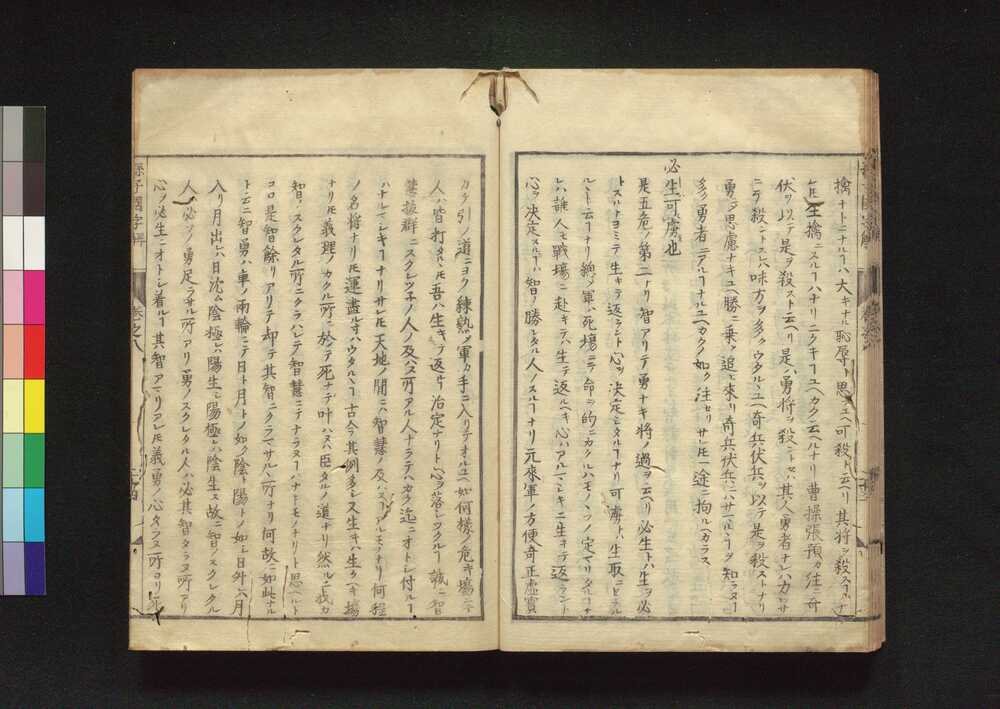 擒ナトニナルヿハ大キナル恥辱ト思フユヘ可殺ト云ヘリ其將ヲ殺スヿハナ
レ𪜈生擒ニスルヿハナリニクキヿユヘカク云ヘルナリ曹操張預カ注ニ奇
伏ヲ以テ是ヲ殺スト云ヘリ是ハ勇將ヲ殺ントセハ其人勇者ナレハ力ワサ
ニテ殺ントスレハ味方ヲ多クウタルヽユヘ奇兵伏兵ヲ以テ是ヲ殺ストナリ
勇ノミ思慮ナキユヘ勝ニ乗ソ追ヒ來リ奇兵伏兵ニハサマルヽヿヲ知ラヌヿ
多ク勇者ニアルヿナルユヘカクノ如ク注セリサレ𪜈一途ニ拘ルヘカラス
必生可虜也
是五危ノ第二ナリ智アリテ勇ナキ將ノ過ヲ云ヘリ必生トハ生ヲ必
トストヨミテ生キテ返ラント心ヲ決定シタルヿナリ可虜トハ生取ニセラル
ルト云ヿナリ總ノ軍ハ死場ニテ命ヲ的ニカクルハモノヽフノ定マリタルヿナ
レハ誰人モ戰場ニ赴キテハ生テ返ルヘキ心ハアルマシキニ生キテ返ラント
心ヲ決定スルヿハ智ノ勝レタル人ノスルヿナリ元來軍ノ方便奇正虚實
カケ引ノ道ニヨク練熟ノ軍カ手ニ入リテオルユヘ如何様ノ危キ場ニテ
人ハ皆打タルレ𪜈吾ハ生キテ返ルヘシ治定ナリト心ヲ落シツクルヿ誠ニ智
慧抜群ニスクレツネノ人ノ及ハヌ所アル人ナラテハカク迄ニオトシ付ルヿ
ハナルマシキヿナリサレ𪜈天地ノ間ニハ智慧ノ及ハヌヿアルモノナリ何程
ノ名將ナリ𪜈運盡ルレハウタルヽヿ古今其例多シヌ生キハ生クヘキ場
ナリ𪜈義理ノカクル所ニ於テ死ナテ叶ハヌハ臣タルノ道ナリ然ルニ我カ
智ノスクレタル所ニクラハシテ智慧ニテナラヌヿハナキモノナリト思ヘルト
コロ是智餘リアリテ却テ其智ニクラマサルヽ所ナリ何故ニ如此ナル
ト云ニ智勇ハ車ノ兩輪ニテ日ト月トノ如ク陰ト陽トノ如シ日外ハ月
入リ月出レハ日沈ム陰極レハ陽生シ陽極レハ陰生ス故ニ智ノスクレタル
人ハ必ソノ勇足ラサル所アリ勇ノスクレタル人ハ必其智タラヌ所アリ
心ヲ必生ニオトシ着ルヿ其智アマリアレ𪜈義勇ノ心タラヌ所ヨリ
孫子國字解
卷之八